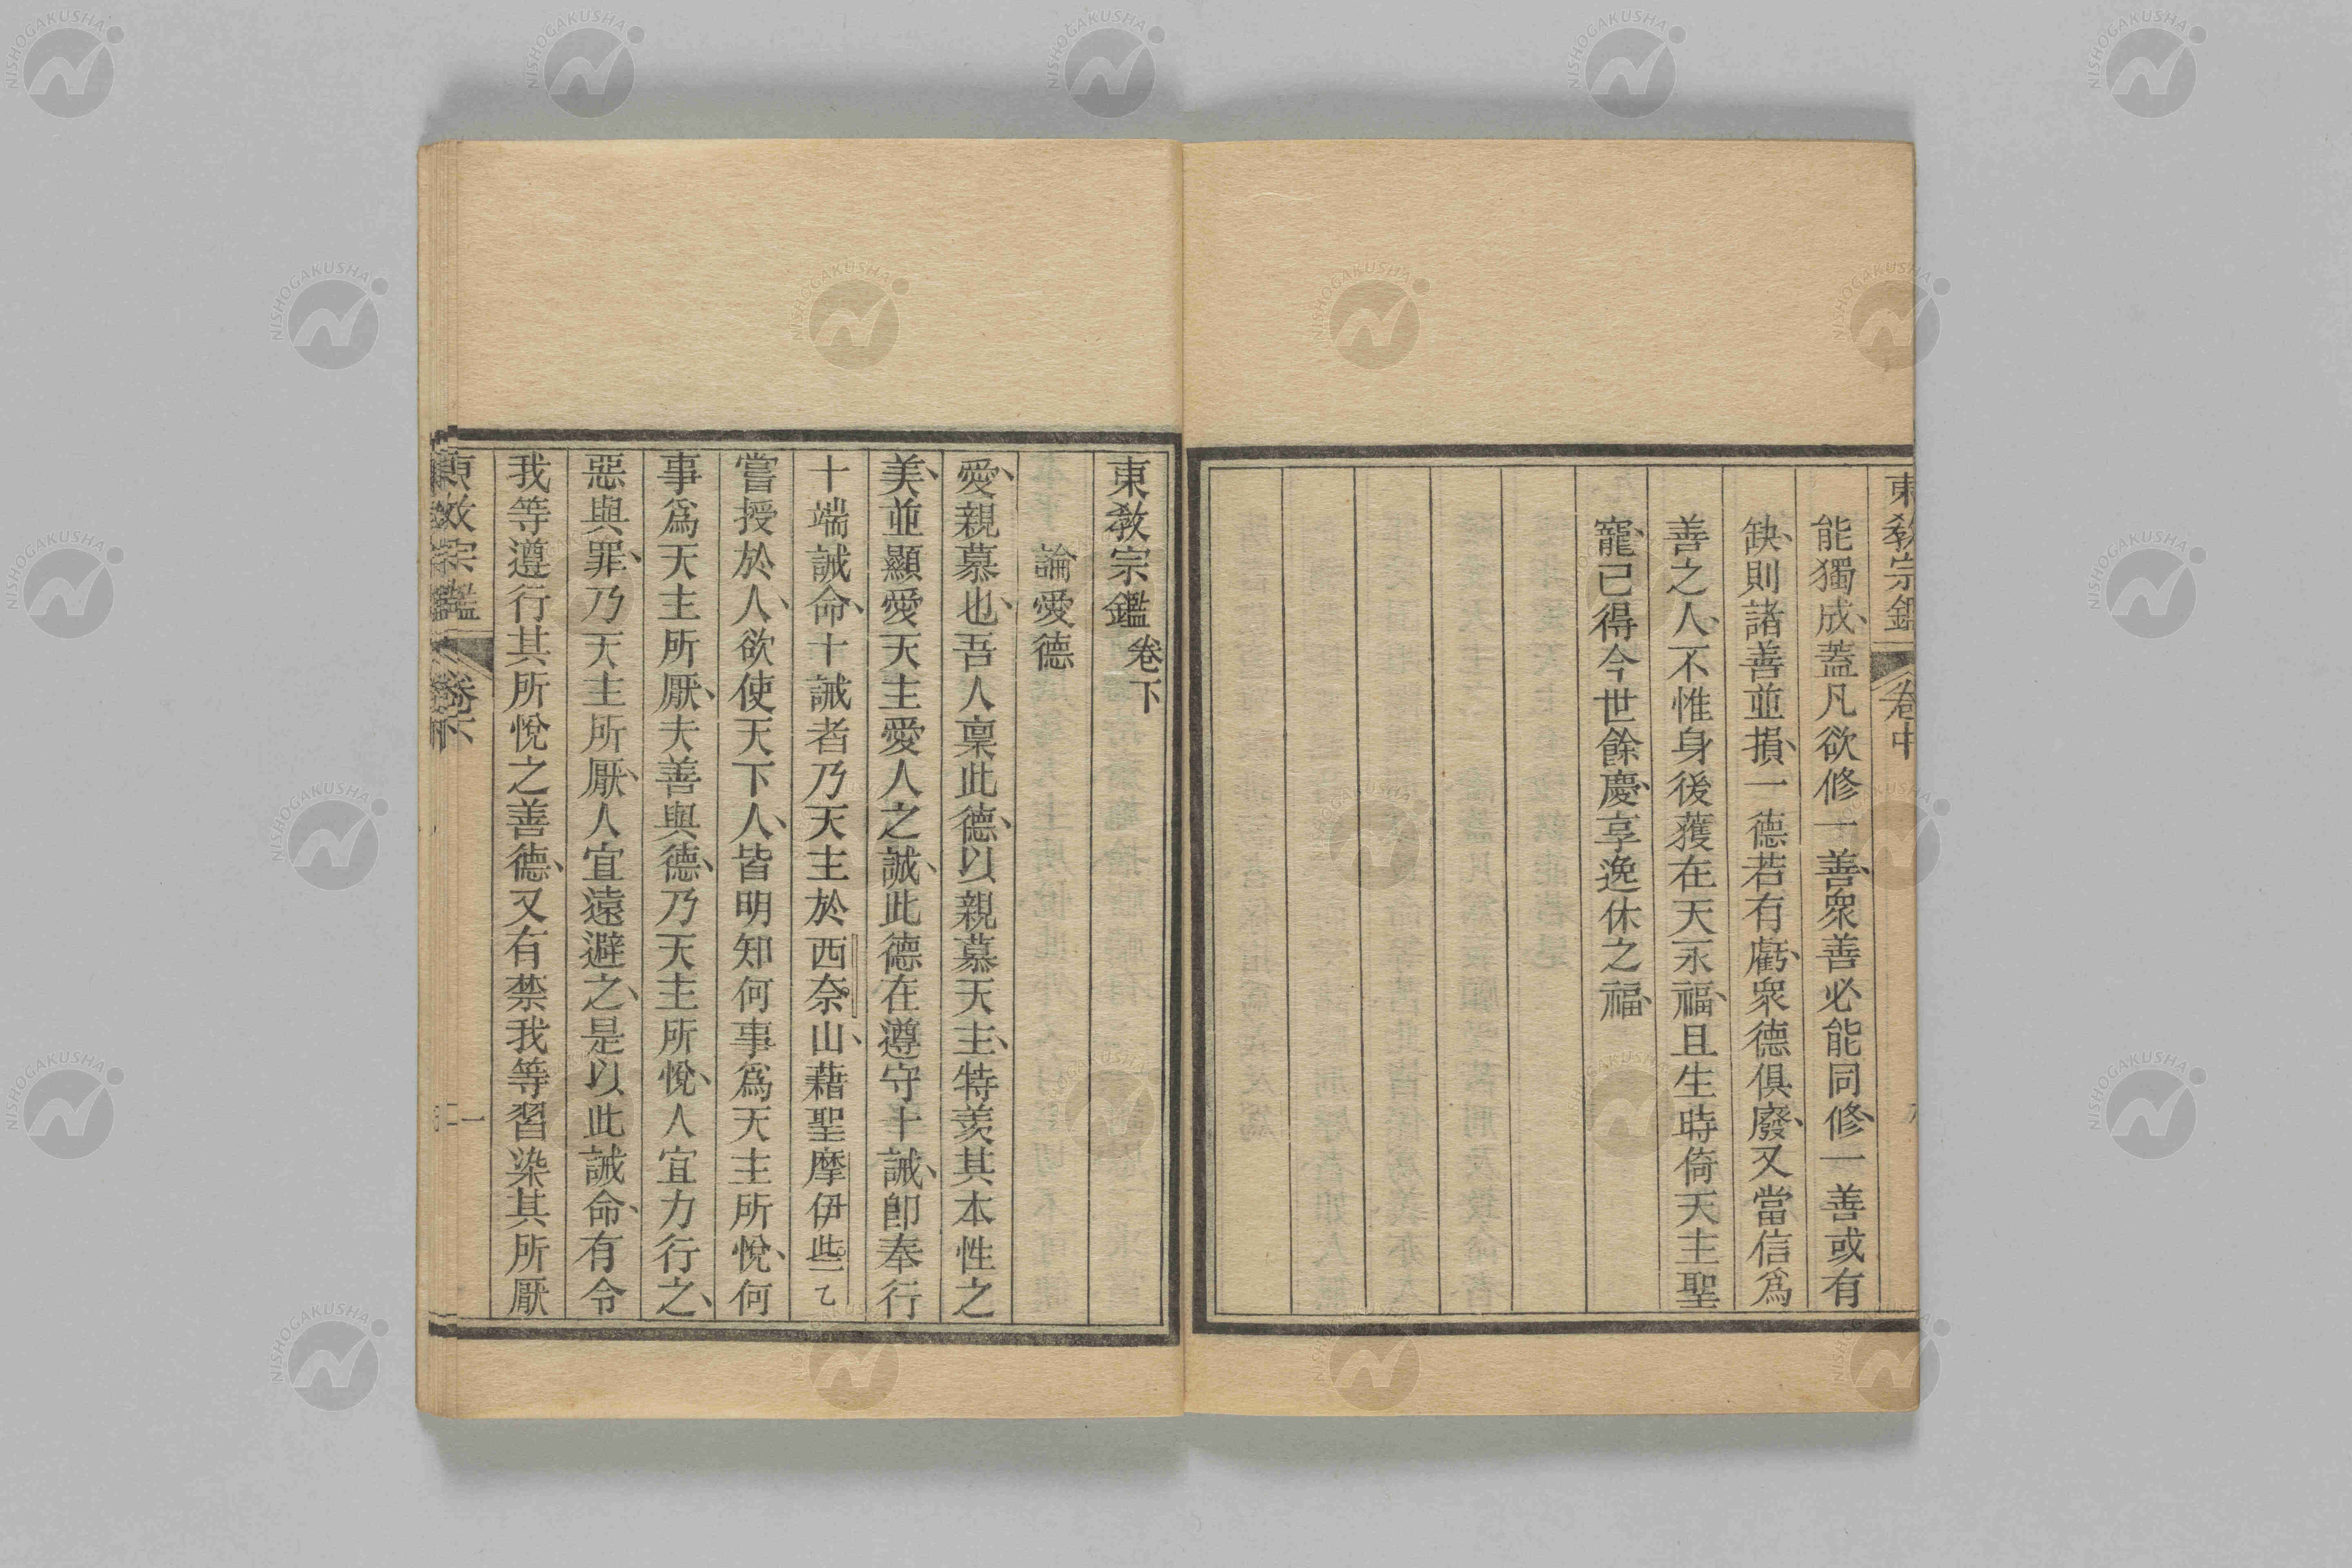 東教宗鑑 卷中
能獨成、蓋凡欲修一善、衆善必能同修、一善或有
缺、則諸善並損、一德若有虧、衆德俱廢、又當信爲
善之人、不惟身後獲在天永福、且生時倚天主聖
寵、已得今世餘慶、享逸休之福、
東敎宗鑑 卷下
論愛德
愛、親慕也、吾人稟此德、以親慕天主、特羨其本性之
美、並顯愛天主愛人之誠、此德在遵守十誡、卽奉行
十端誡命、十誡者乃天主於西奈山、藉聖摩伊些乙
嘗授於人、欲使天下人、皆明知何事爲天主所悅、何
事爲天主所厭、夫善與德、乃天主所悅、人宜力行之、
惡與罪、乃天主所厭、人宜遠避之、是以此誡命、有令
我等遵行其所悅之善德、又有禁我等習染其所厭
東敎宗鑑
一
NISHOGAKUSHA